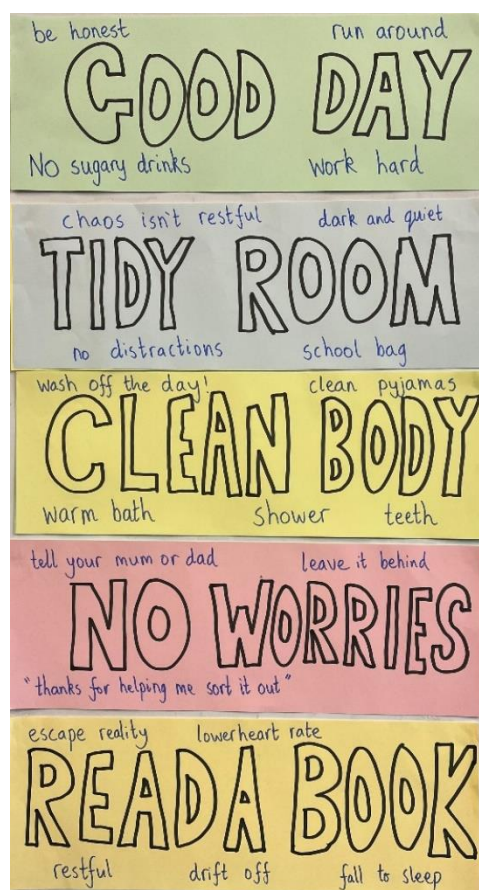 be honest run around
GOOD DAY
No sugary drinks work hard
chaos isn't restful dark and quiet
TIDY ROOM
no distractions school bag
wash off the day! clean pyjamas
CLEAN BODY
warm bath shower teeth
tell your mum or dad leave it behind
NO WORRIES
"thanks for helping me sort it out"
escape reality lowerheart rate
READ A BOOK
restful drift off fall to sleep